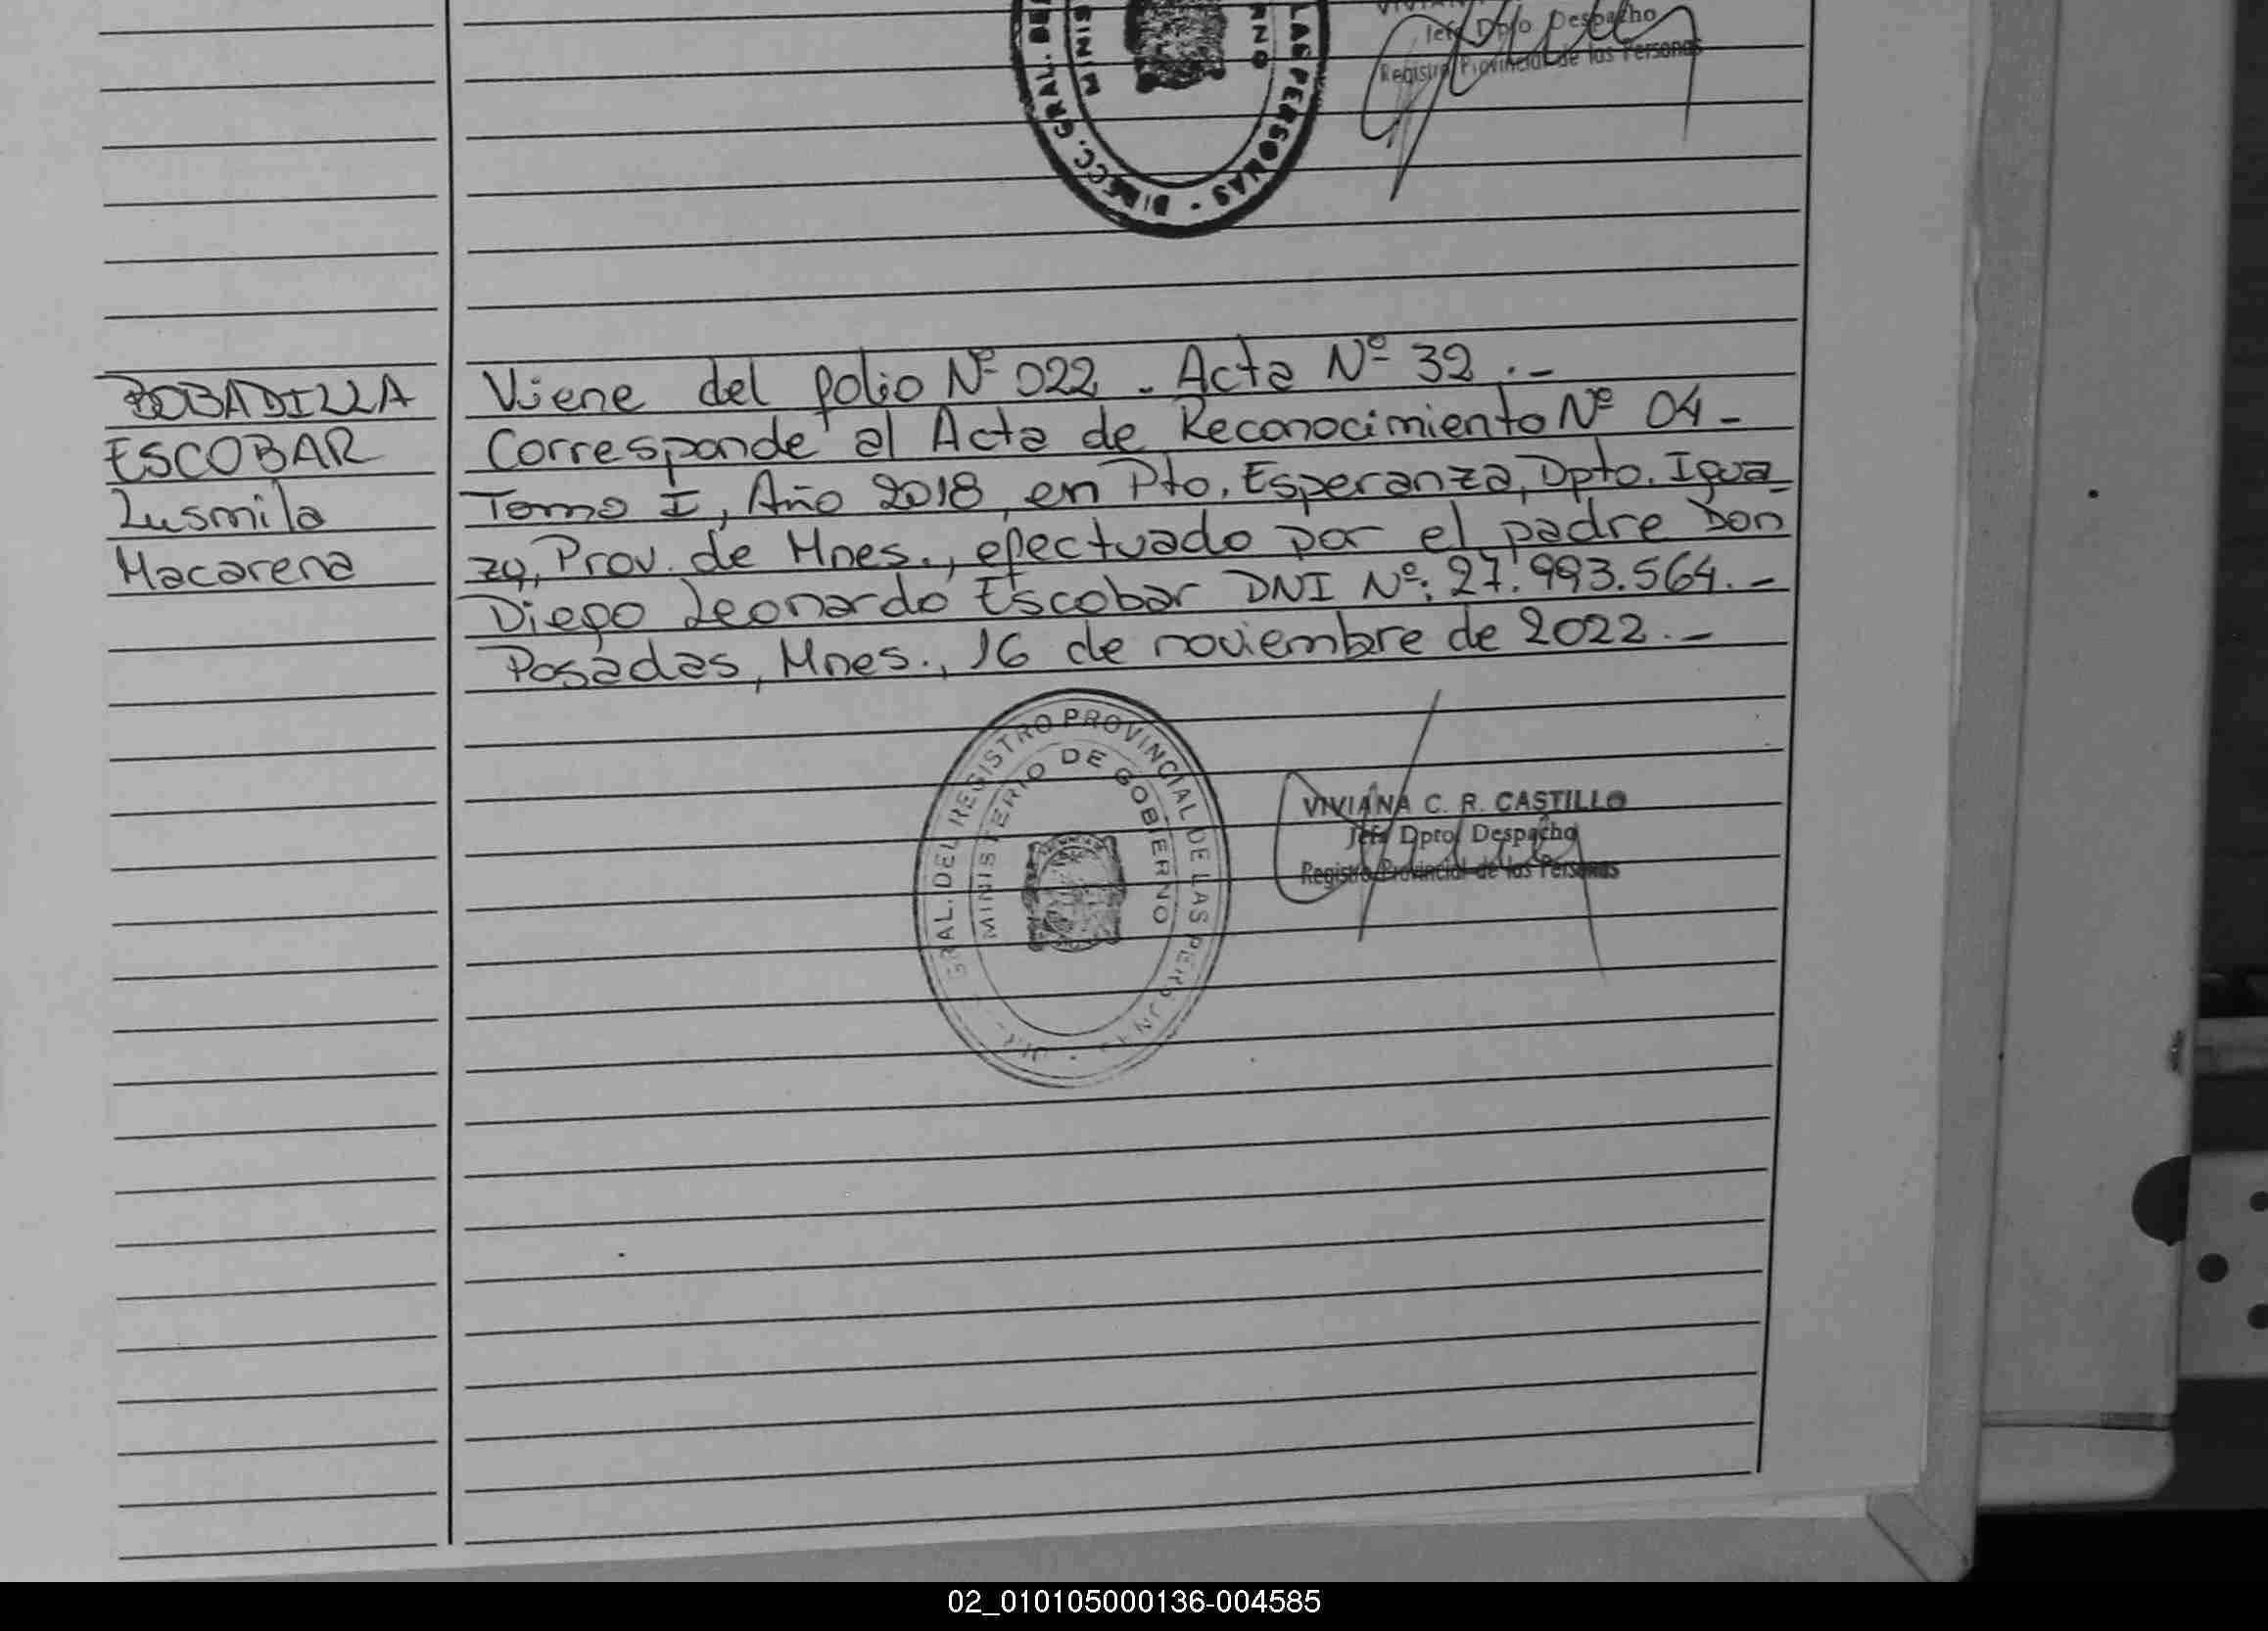 Jefe Dpto Despacho
Registro Provincial de las Personas
LAS PERSONAS - DIRECC. GRAL. DEL
BOBADILLA
ESCOBAR
Lusmila
Macarena
Viene del folio Nº 022 - Acta Nº 32.-
Corresponde al Acta de Reconocimiento Nº 04-
Tomo I, Año 2018, en Pto. Esperanza, Dpto. Igua-
zú, Prov. de Mnes., efectuado por el padre Don
Diego Leonardo Escobar DNI Nº: 27.993.564.-
Posadas, Mnes., 16 de noviembre de 2022.-
GRAL. DEL REGISTRO PROVINCIAL DE LAS
MINISTERIO DE GOBIERNO
VIVIANA C. R. CASTILLO
Jefe Dpto Despacho
Registro Provincial de las Personas
02_010105000136-004585